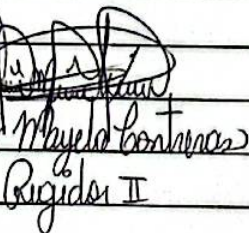 Mayela Contreras
Regidor II